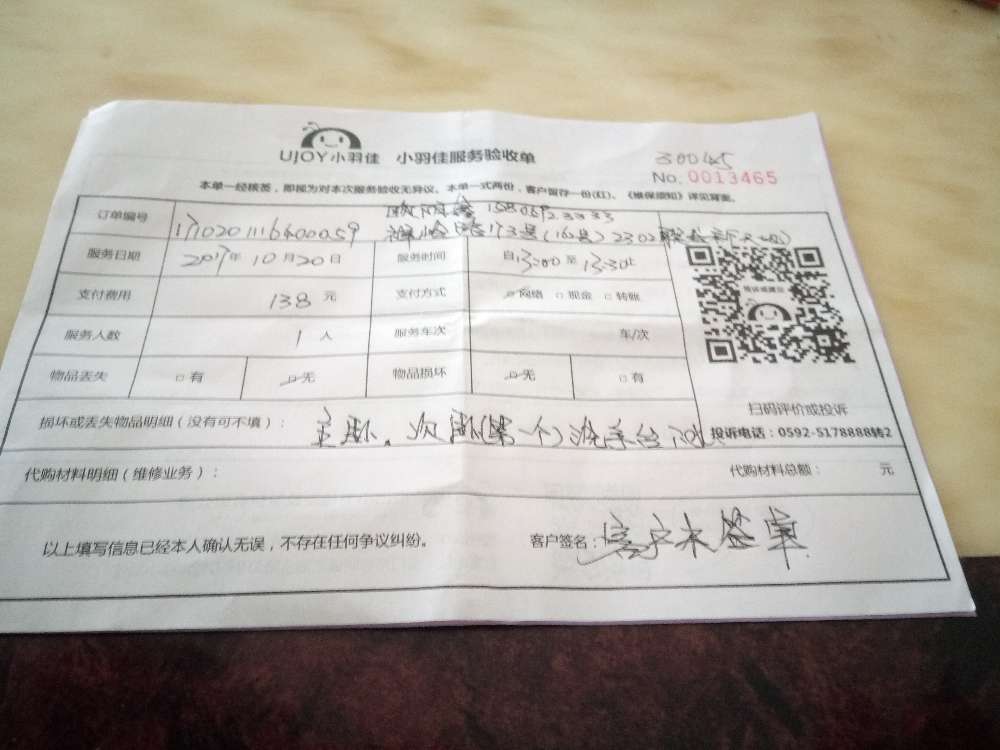 UJOY小羽佳 小羽佳服务验收单
30045
No. 0013465
本单一经核签，即视为对本次服务验收无异议。本单一式两份，客户留存一份(红)。《维保须知》详见背面。
订单编号
173号(163号)2302
服务日期 2017年10月20日 服务时间 自13:00至13:30止
支付费用 138元 支付方式 网络 现金 转账
服务人数 1人 服务车次 车/次
物品丢失 有 无 物品损坏 无 有
投诉或建议
扫码评价或投诉
投诉电话：0592-5178888转2
损坏或丢失物品明细（没有可不填）： 主卧、次卧(第一个)洗手台
代购材料明细（维修业务）： 代购材料总额： 元
以上填写信息已经本人确认无误，不存在任何争议纠纷。 客户签名：客户未签单